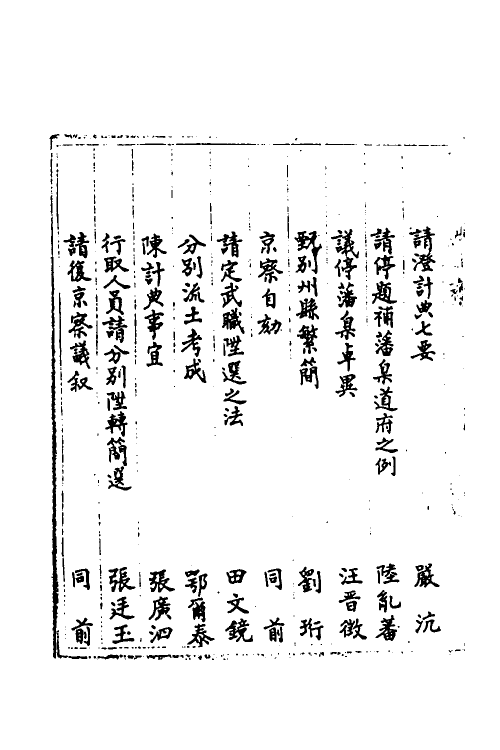 請澄計典七要 嚴沆
請停題補藩臬道府之例 陸亂蕃
議停藩臬卓異 汪晋徴
甄別州縣繁簡 劉珩
京察自劾 同前
請定武職陞選之法 田文鏡
分別流土考成 鄂爾泰
陳計典事宜 張廣泗
行取人員請分別陞轉簡選 張廷玉
請復京察議叙 同前